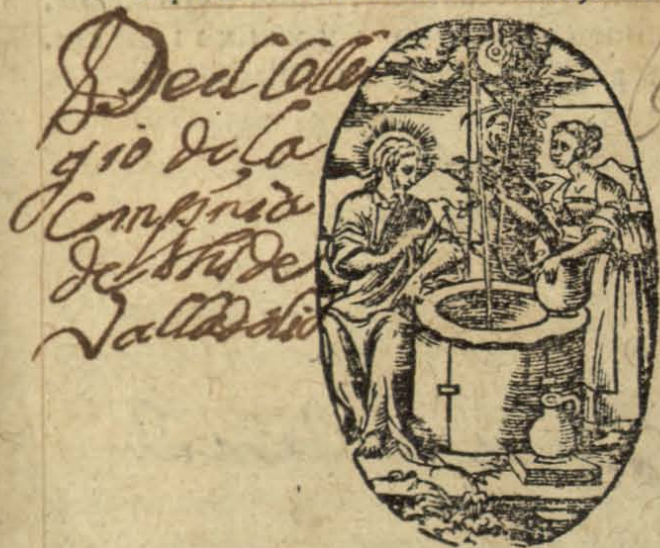 Del Colle
gio de la
Compᵃñia
de Jhs de
Valladolid